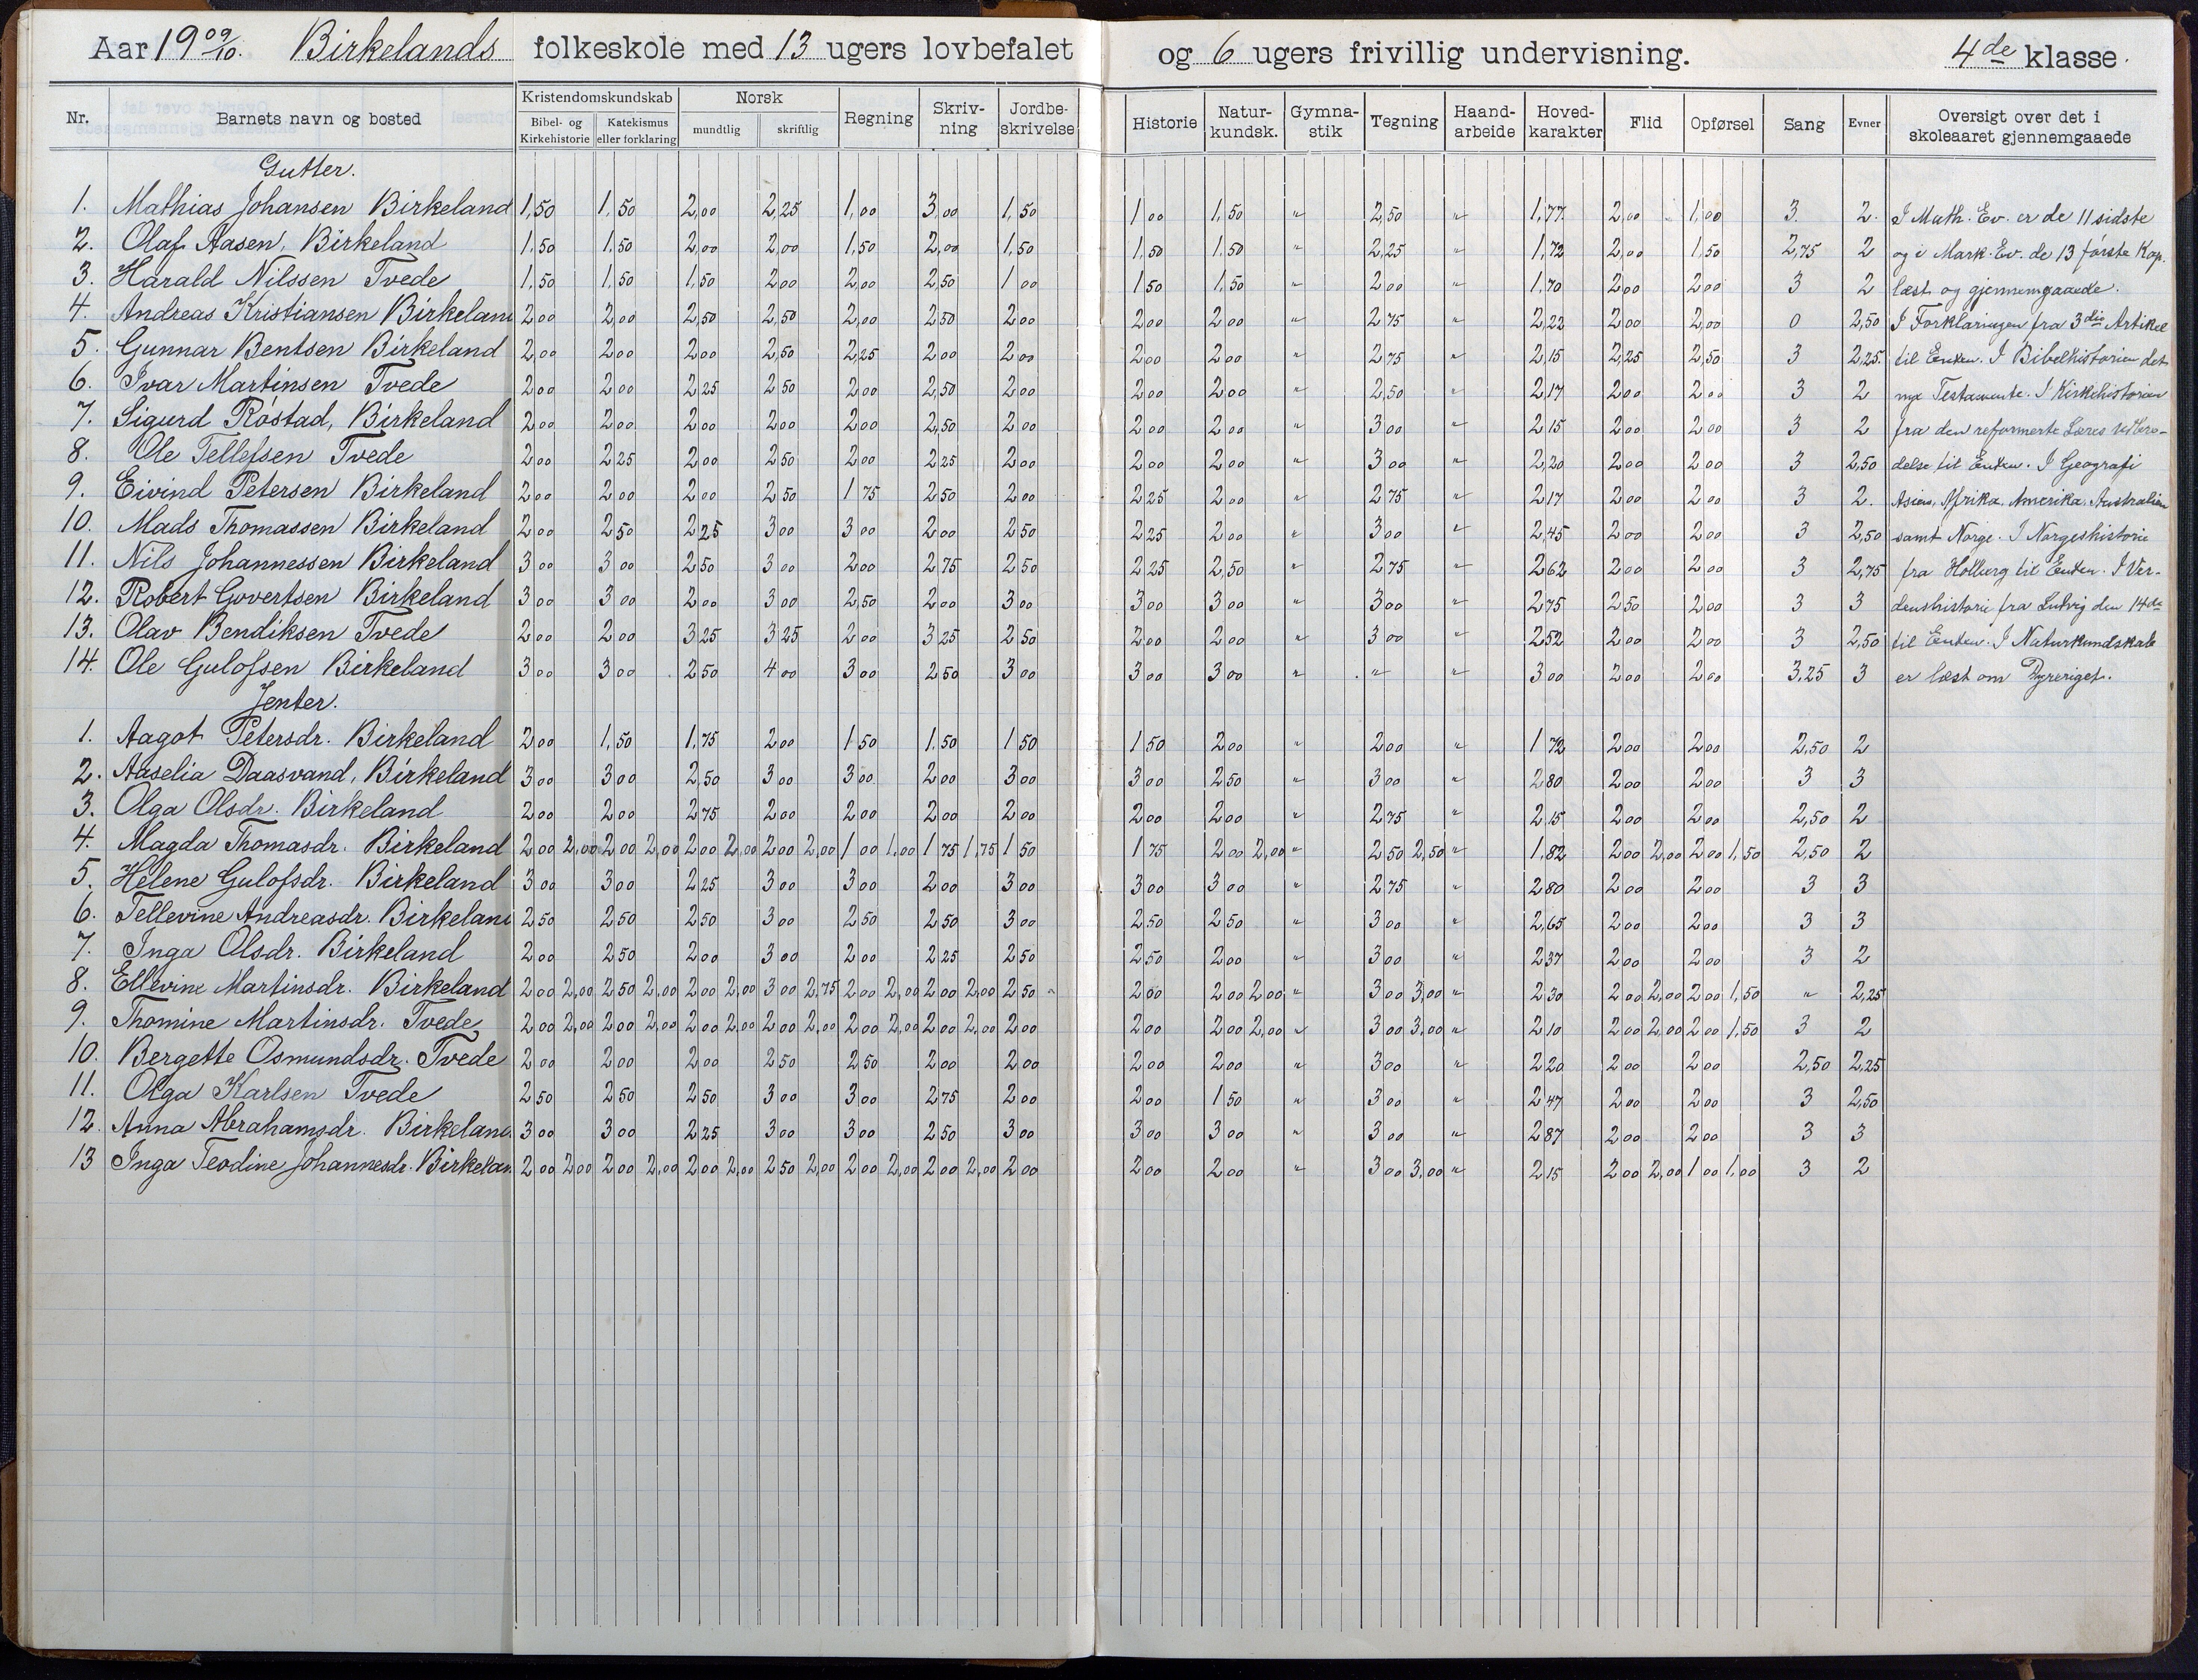 Aar 19 09/10. Birkelands folkeskole med 13 ugers lovbefalet og 6 ugers frivillig undervisning. 4de klasse.
Nr. Barnets navn og bosted Kristendomskundskab Bibel- og Kirkehistorie Katekismus eller forklaring Norsk mundtlig skriftlig Regning Skriv-ning Jordbe-skrivelse Historie Natur-kundsk. Gymna-stik Tegning Haand-arbeide Hoved-karakter Flid Opførsel Sang Evner Oversigt over det i skoleaaret gjennemgaaede
Gutter.
1. Mathias Johansen Birkeland 1,50 1,50 2,00 2,25 1,00 3,00 1,50 1 00 1,50 " 2,50 " 1,77 2,00 1,00 3. 2. I Math. Ev. er de 11 sidste
2. Olaf Aasen, Birkeland 1,50 1,50 2,00 2,00 1,50 2,00 1,50 1,50 1,50 " 2,25 " 1,72 2,00 1,50 2,75 2 og i Mark. Ev. de 13 første Kap.
3. Harald Nilssen Tvede 1,50 1,50 1,50 2,00 2,00 2,50 1 00 1 50 1,50 " 2,00 " 1,70 2,00 2,00 3 2 læst og gjennemgaaede.
4. Andreas Kristiansen Birkelan 2,00 2,00 2,50 2,50 2,00 2,50 2,00 2,00 2,00 " 2,75 " 2,22 2,00 2,00 0 2,50 I Forklaringen fra 3die Artikel
5. Gunnar Bentsen Birkeland 2,00 2,00 2,00 2,50 2,25 2,00 2,00 2,00 2,00 " 2,75 " 2,15 2,25 2,50 3 2,25 til Enden. I Bibelhistorien det
6. Ivar Martinsen Tvede 2,00 2,00 2 25 2 50 2,00 2,50 2,00 2,00 2,00 " 2,50 " 2,17 2,00 2,00 3 2 nye Testamente. I Kirkehistorien
7. Sigurd Røstad, Birkeland 2,00 2,00 2,00 2,00 2,00 2,50 2,00 2,00 2,00 " 3 00 " 2 15 2,00 2,00 3 2 fra den reformerte Læres Udbre-
8. Ole Tellefsen Tvede 2,00 2 25 2,00 2 50 2,00 2 25 2,00 2,00 2,00 " 3 00 " 2,20 2,00 2,00 3 2,50 delse til Enden. I Geografi
9. Eivind Petersen Birkeland 2,00 2,00 2,00 2 50 1 75 2 50 2,00 2 25 2,00 " 2 75 " 2 17 2,00 2,00 3 2. Asien, Afrika, Amerika, Australien
10. Mads Thomassen Birkeland 2,00 2 50 2 25 3 00 3 00 2,00 2 50 2 25 2,00 " 3 00 " 2,45 2,00 2,00 3 2,50 samt Norge. I Norgeshistorie
11. Nils Johannessen Birkeland 3 00 3 00 2 50 3 00 2,00 2 75 2 50 2 25 2,50 " 2 75 " 2 62 2,00 2,00 3 2,75 fra Holberg til Enden. I Ver-
12. Robert Govertsen Birkeland 3 00 3 00 2,00 3 00 2,50 2,00 3 00 3 00 3 00 " 3 00 " 2 75 2 50 2,00 3 3 denshistorie fra Ludvig den 14de
13. Olav Bendiksen Tvede 2,00 2,00 3 25 3 25 2,00 3 25 2 50 2,00 2,00 " 3 00 " 2 52 2,00 2,00 3 2,50 til Enden. I Naturkundskab
14. Ole Gulofsen Birkeland 3 00 3 00 2 50 4 00 3 00 2 50 3 00 3 00 3 00 " " " 3 00 2,00 2,00 3,25 3 er læst om Dyreriget.
Jenter.
1. Aagot Petersdr. Birkeland 2,00 1,50 1,75 2,00 1 50 1,50 1 50 1 50 2,00 " 2,00 " 1 72 2,00 2,00 2,50 2
2. Aaselia Daasvand, Birkeland 3 00 3 00 2,50 3 00 3 00 2,00 3 00 3 00 2 50 " 3 00 " 2 80 2,00 2,00 3 3
3. Olga Olsdr. Birkeland 2,00 2,00 2 75 2,00 2,00 2,00 2,00 2,00 2,00 " 2 75 " 2,15 2,00 2,00 2,50 2
4. Magda Thomasdr. Birkeland 2 00 2,00 2 00 2,00 2 00 2,00 2 00 2,00 1 00 1,00 1 75 1,75 1 50 1 75 2 00 2,00 " 2 50 2,50 " 1,82 2 00 2,00 2 00 1,50 2,50 2
5. Helene Gulofsdr. Birkeland 3 00 3 00 2 25 3 00 3 00 2 00 3 00 3 00 3 00 " 2 75 " 2 80 2 00 2 00 3 3
6. Tellevine Andreasdr. Birkelan 2 50 2 50 2 50 3 00 2 50 2 50 3 00 2 50 2 50 " 3 00 " 2,65 2 00 2 00 3 3
7. Inga Olsdr. Birkeland 2 00 2 50 2 00 3 00 2 00 2 25 2 50 2 50 2 00 " 3 00 " 2 37 2 00 2 00 3 2
8. Ellevine Martinsdr. Birkeland 2 00 2,00 2 50 2,00 2 00 2,00 3 00 2,75 2 00 2,00 2 00 2,00 2 50 " 2 00 2 00 2 00 " 3 00 3,00 " 2 30 2 00 2,00 2 00 1,50 " 2,25
9. Thomine Martinsdr. Tvede 2 00 2,00 2 00 2,00 2 00 2,00 2 00 2,00 2 00 2,00 2 00 2,00 2 00 2 00 2 00 2,00 " 3 00 3,00 " 2 10 2 00 2,00 2 00 1,50 3 2
10. Bergette Osmundsdr. Tvede 2 00 2 00 2 00 2 50 2 50 2 00 2 00 2 00 2 00 " 3 00 " 2 20 2 00 2 00 2,50 2,25
11. Olga Karlsen Tvede 2 50 2 50 2 50 3 00 3 00 2 75 2 00 2 00 1 50 " 3 00 " 2 47 2 00 2 00 3 2,50
12. Anna Abrahamsdr. Birkelan 3 00 3 00 2 25 3 00 3 00 2 50 3 00 3 00 3 00 " 3 00 " 2 87 2 00 2 00 3 3
13 Inga Teodine Johannesdr. Birkelan 2 00 2 00 2 00 2,00 2 00 2,00 2 50 2,00 2 00 2,00 2 00 2,00 2 00 2 00 2 00 " 3 00 3,00 " 2 15 2 00 2,00 1 00 1,00 3 2